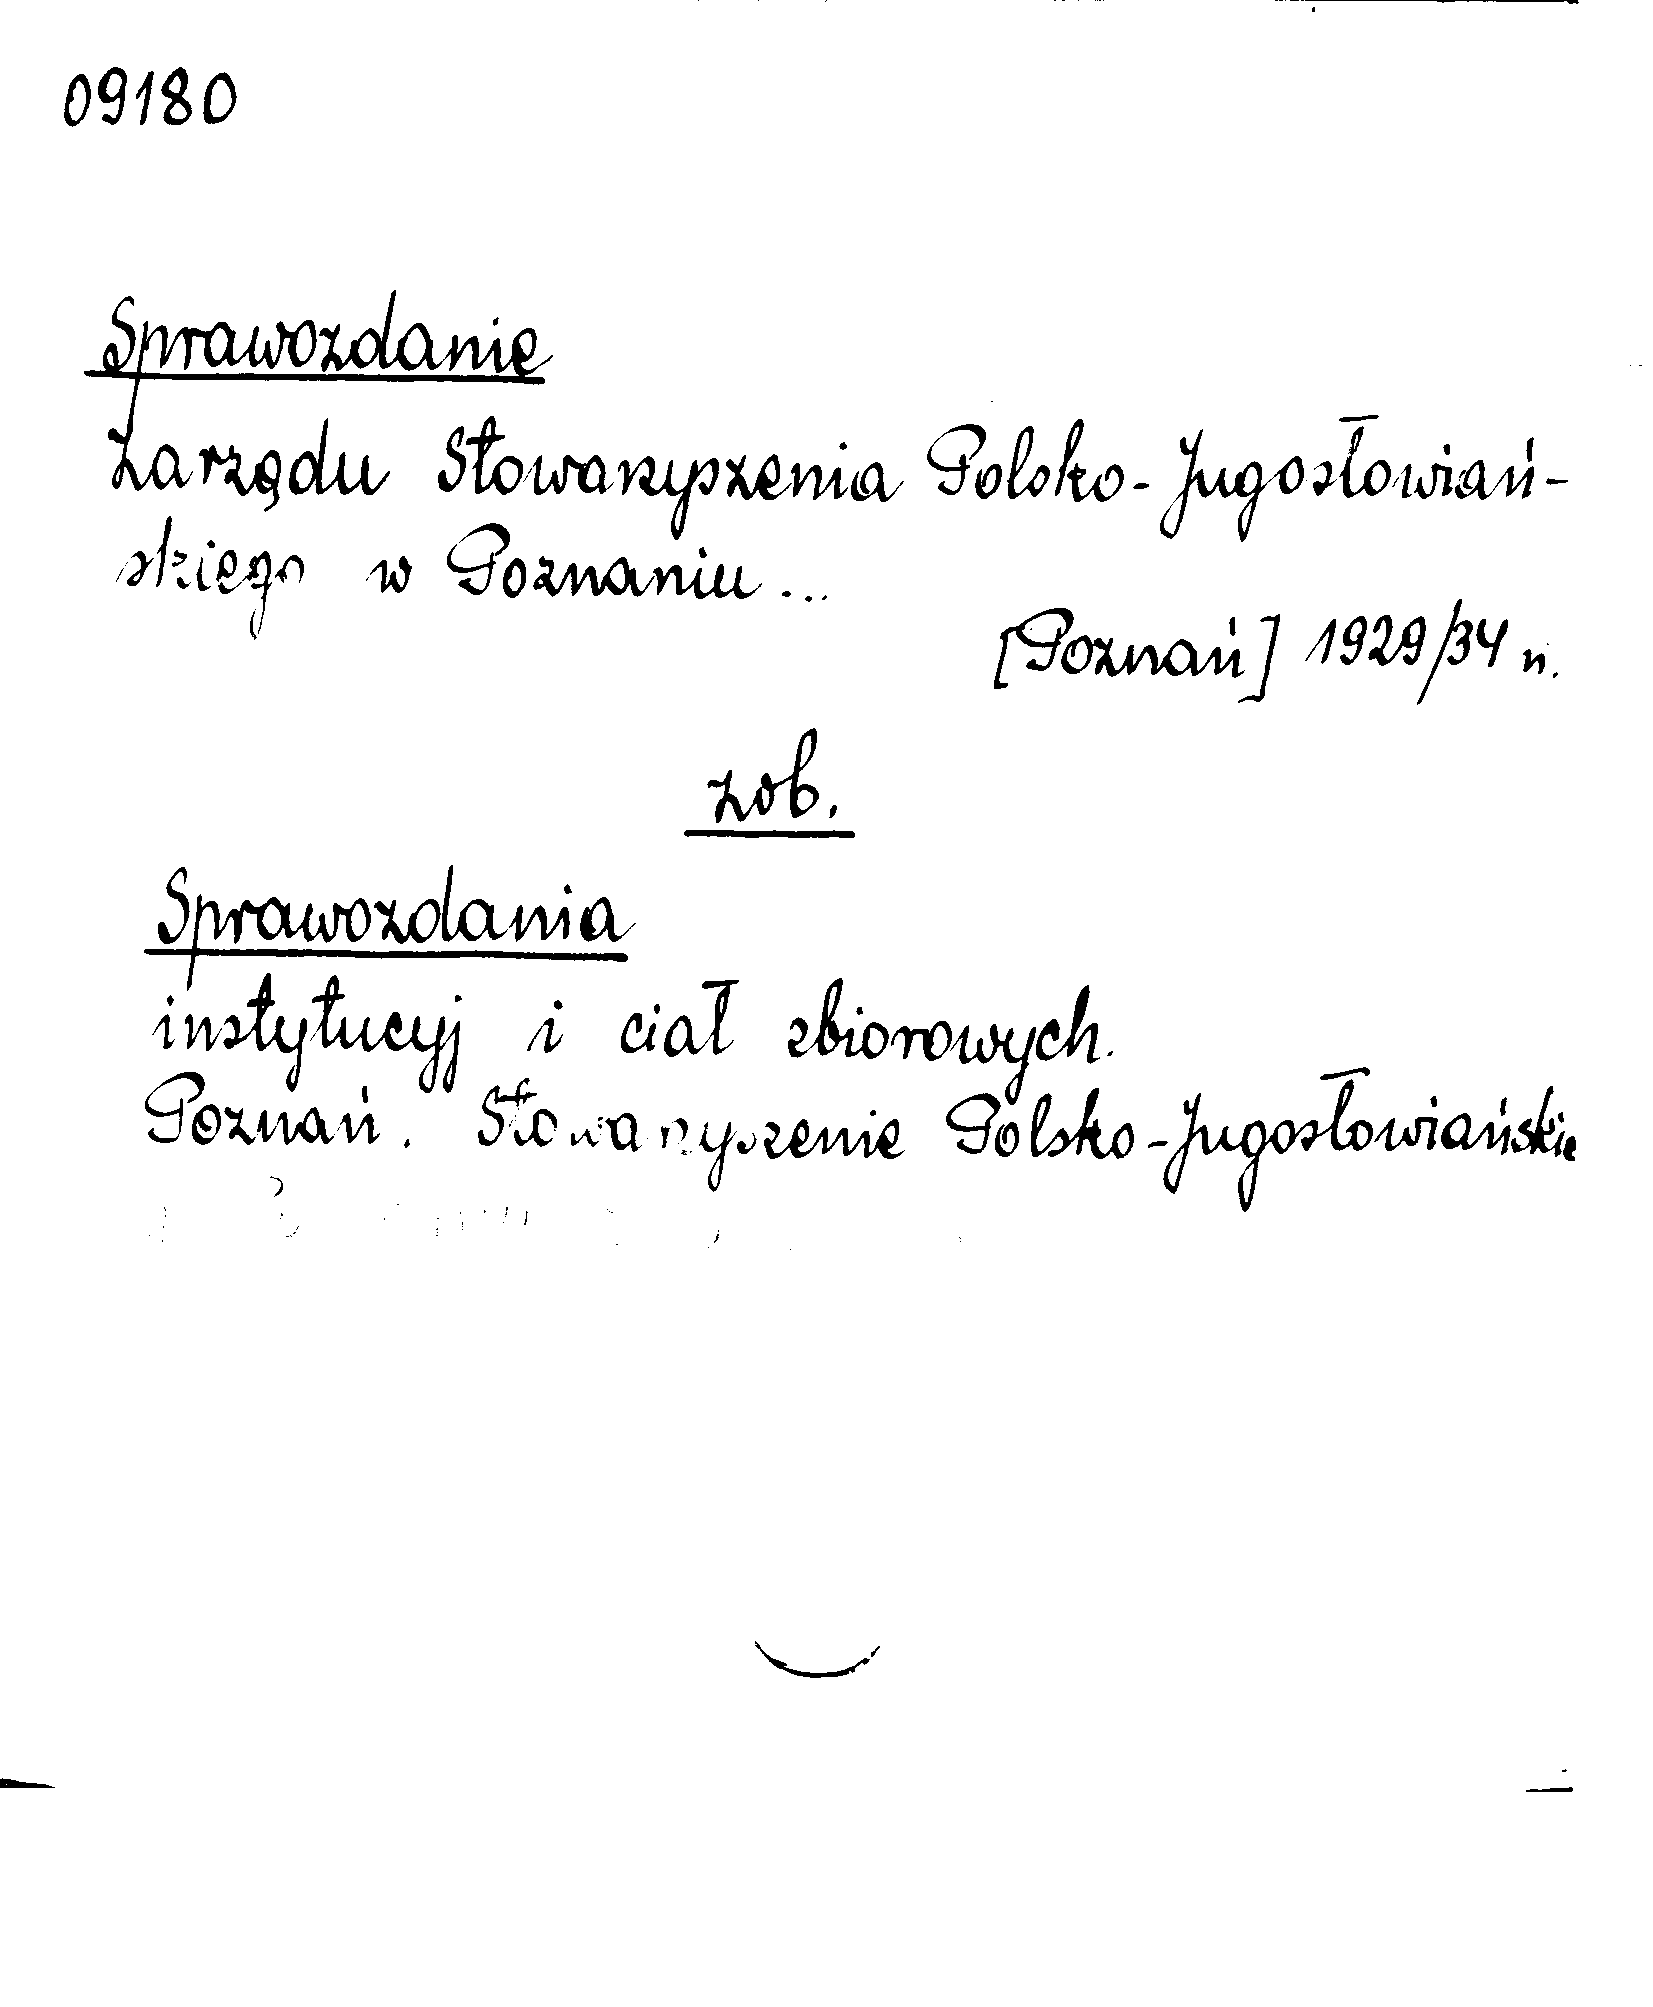 09180
Sprawozdanie
Zarządu Stowarzyszenia Polsko-Jugosłowiań-
skiego w Poznaniu...
[Poznań] 1929/34 n.
zob.
Sprawozdania
instytucyj i ciał zbiorowych.
Poznań. Stowarzyszenie Polsko-Jugosłowiańskie